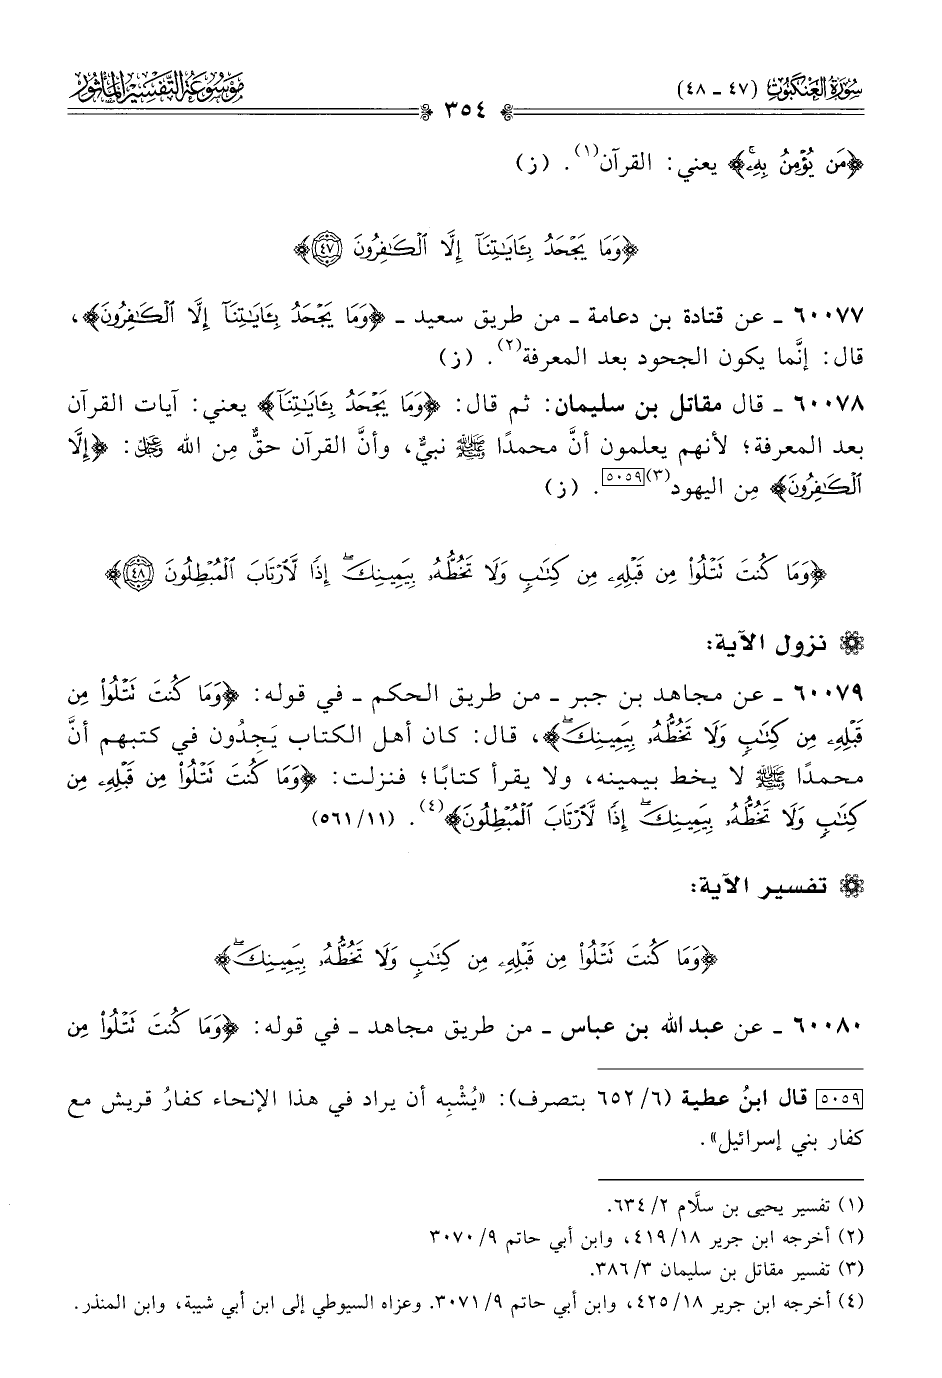 سُورَةُ العَنكَبُوتِ (٤٧ - ٤٨)
٣٥٤
مَوْسُوعَةُ التَّفْسِيرِ المَأْثُورِ
﴿مَن يُؤْمِنُ بِهِۦ﴾ يعني: القرآن(١). (ز)
﴿وَمَا يَجْحَدُ بِـَٔايَـٰتِنَآ إِلَّا ٱلْكَـٰفِرُونَ ٤٧﴾
٦٠٠٧٧ ـ عن قتادة بن دعامة ـ من طريق سعيد ـ ﴿وَمَا يَجْحَدُ بِـَٔايَـٰتِنَآ إِلَّا ٱلْكَـٰفِرُونَ﴾،
قال: إنَّما يكون الجحود بعد المعرفة(٢). (ز)
٦٠٠٧٨ ـ قال مقاتل بن سليمان: ثم قال: ﴿وَمَا يَجْحَدُ بِـَٔايَـٰتِنَآ﴾ يعني: آيات القرآن
بعد المعرفة؛ لأنهم يعلمون أنَّ محمدًا ﷺ نبيٌّ، وأنَّ القرآن حقٌّ مِن الله عز وجل: ﴿إِلَّا
ٱلْكَـٰفِرُونَ﴾ مِن اليهود(٣)[٥٠٥٩]. (ز)
﴿وَمَا كُنتَ تَتْلُوا۟ مِن قَبْلِهِۦ مِن كِتَـٰبٍ وَلَا تَخُطُّهُۥ بِيَمِينِكَ ۖ إِذًا لَّٱرْتَابَ ٱلْمُبْطِلُونَ ٤٨﴾
نزول الآية:
٦٠٠٧٩ ـ عن مجاهد بن جبر ـ من طريق الحكم ـ في قوله: ﴿وَمَا كُنتَ تَتْلُوا۟ مِن
قَبْلِهِۦ مِن كِتَـٰبٍ وَلَا تَخُطُّهُۥ بِيَمِينِكَ ۖ﴾، قال: كان أهل الكتاب يَجِدُون في كتبهم أنَّ
محمدًا ﷺ لا يخط بيمينه، ولا يقرأ كتابًا؛ فنزلت: ﴿وَمَا كُنتَ تَتْلُوا۟ مِن قَبْلِهِۦ مِن
كِتَـٰبٍ وَلَا تَخُطُّهُۥ بِيَمِينِكَ ۖ إِذًا لَّٱرْتَابَ ٱلْمُبْطِلُونَ﴾(٤). (٥٦١/١١)
تفسير الآية:
﴿وَمَا كُنتَ تَتْلُوا۟ مِن قَبْلِهِۦ مِن كِتَـٰبٍ وَلَا تَخُطُّهُۥ بِيَمِينِكَ ۖ﴾
٦٠٠٨٠ ـ عن عبد الله بن عباس ـ من طريق مجاهد ـ في قوله: ﴿وَمَا كُنتَ تَتْلُوا۟ مِن
[٥٠٥٩] قال ابنُ عطية (٦/ ٦٥٢ بتصرف): «يُشْبِه أن يراد في هذا الإنحاء كفارُ قريش مع
كفار بني إسرائيل».
(١) تفسير يحيى بن سلَّام ٢/ ٦٣٤.
(٢) أخرجه ابن جرير ١٨/ ٤١٩، وابن أبي حاتم ٩/ ٣٠٧٠
(٣) تفسير مقاتل بن سليمان ٣/ ٣٨٦.
(٤) أخرجه ابن جرير ١٨/ ٤٢٥، وابن أبي حاتم ٩/ ٣٠٧١. وعزاه السيوطي إلى ابن أبي شيبة، وابن المنذر.